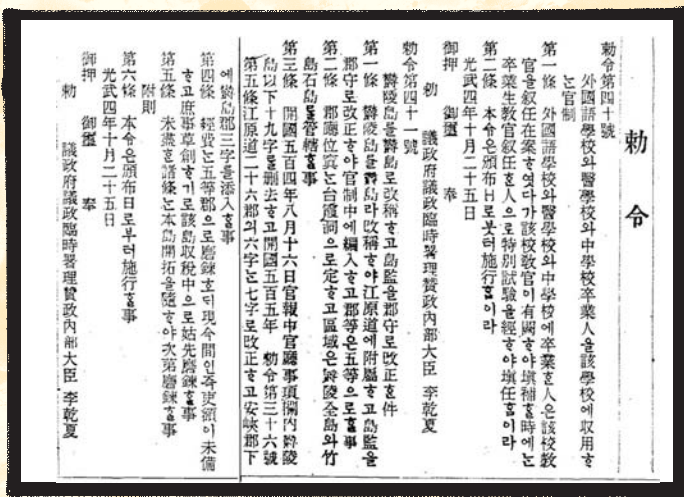 勅令
勅令第四十號
外國語學校와醫學校와中學校卒業人을該學校에收用ᄒᆞ
ᄂᆞᆫ官制
第一條 外國語學校와醫學校와中學校에卒業ᄒᆞᆫ人은該校敎
官을叙任在案ᄒᆞ엿다가該校敎官이有闕ᄒᆞ야塡補ᄒᆞᆯ時에ᄂᆞᆫ
卒業生敎官叙任ᄒᆞᆫ人으로特別試驗을經ᄒᆞ야塡任ᄒᆞᆷ이라
第二條 本令은頒布日로붓터施行ᄒᆞᆷ이라
光武四年十月二十五日
御押 御璽 奉
勅 議政府議政臨時署理贊政內部大臣 李乾夏
勅令第四十一號
鬱陵島를鬱島로改稱ᄒᆞ고島監을郡守로改正ᄒᆞᆫ件
第一條 鬱陵島를鬱島라改稱ᄒᆞ야江原道에附屬ᄒᆞ고島監을
郡守로改正ᄒᆞ야官制中에編入ᄒᆞ고郡等은五等으로ᄒᆞᆯ事
第二條 郡廳位寘ᄂᆞᆫ台霞洞으로定ᄒᆞ고區域은鬱陵全島와竹
島石島를管轄ᄒᆞᆯ事
第三條 開國五百四年八月十六日官報中官廳事項欄內鬱陵
島以下十九字를刪去ᄒᆞ고開國五百五年 勅令第三十六號
第五條江原道二十六郡의六字ᄂᆞᆫ七字로改正ᄒᆞ고安峽郡下
에鬱島郡三字를添入ᄒᆞᆯ事
第四條 經費ᄂᆞᆫ五等郡으로磨鍊호ᄃᆡ現今間인즉吏額이未備
ᄒᆞ고庶事草創ᄒᆞ기로該島收稅中으로姑先磨鍊ᄒᆞᆯ事
第五條 未盡ᄒᆞᆫ諸條ᄂᆞᆫ本島開拓을隨ᄒᆞ야次第磨鍊ᄒᆞᆯ事
附則
第六條 本令은頒布日로부터施行ᄒᆞᆯ事
光武四年十月二十五日
御押 御璽 奉
勅 議政府議政臨時署理贊政內部大臣 李乾夏